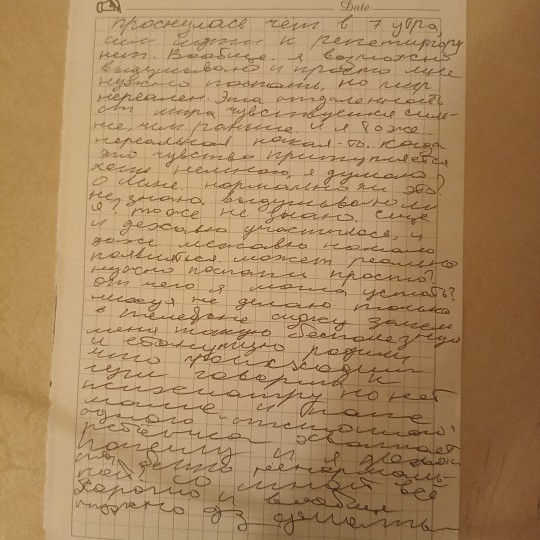 Date
проснулась чем в 7 утра,
сил идти к репетитору
нет. Вообще. я возможно
выдумываю и просто мне
нужно поспать, но мир
нереален. Эта отдаленность
от мира чувствуется силь-
нее, чем раньше. и я тоже
нереальная какая-то. Когда
это чувство притупляется
хотя немного, я думаю
о мне. нормально ли это?
не знаю. выдумываю ли
я? тоже не знаю. еще
и дежавю участилось, и
даже жамевю начало
появляться. может реально
нужно поспать просто?
от чего я могла устать?
нихуя не делаю только
в телефоне сижу зачем
меня такую бесполезную
и ебанутую родили
что происходит
говорит к
психиатру но нет
маме и папе
одного "отсталого"
ребёнка хватает
почему и я должна
быть ненормаль-
ной? со мной всё
хорошо и вообще
нужно дз делать